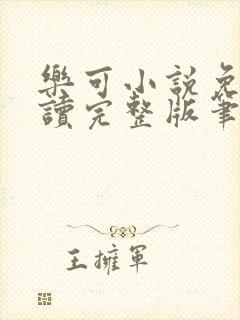 樂可小說免
讀完整版筆
王擁軍